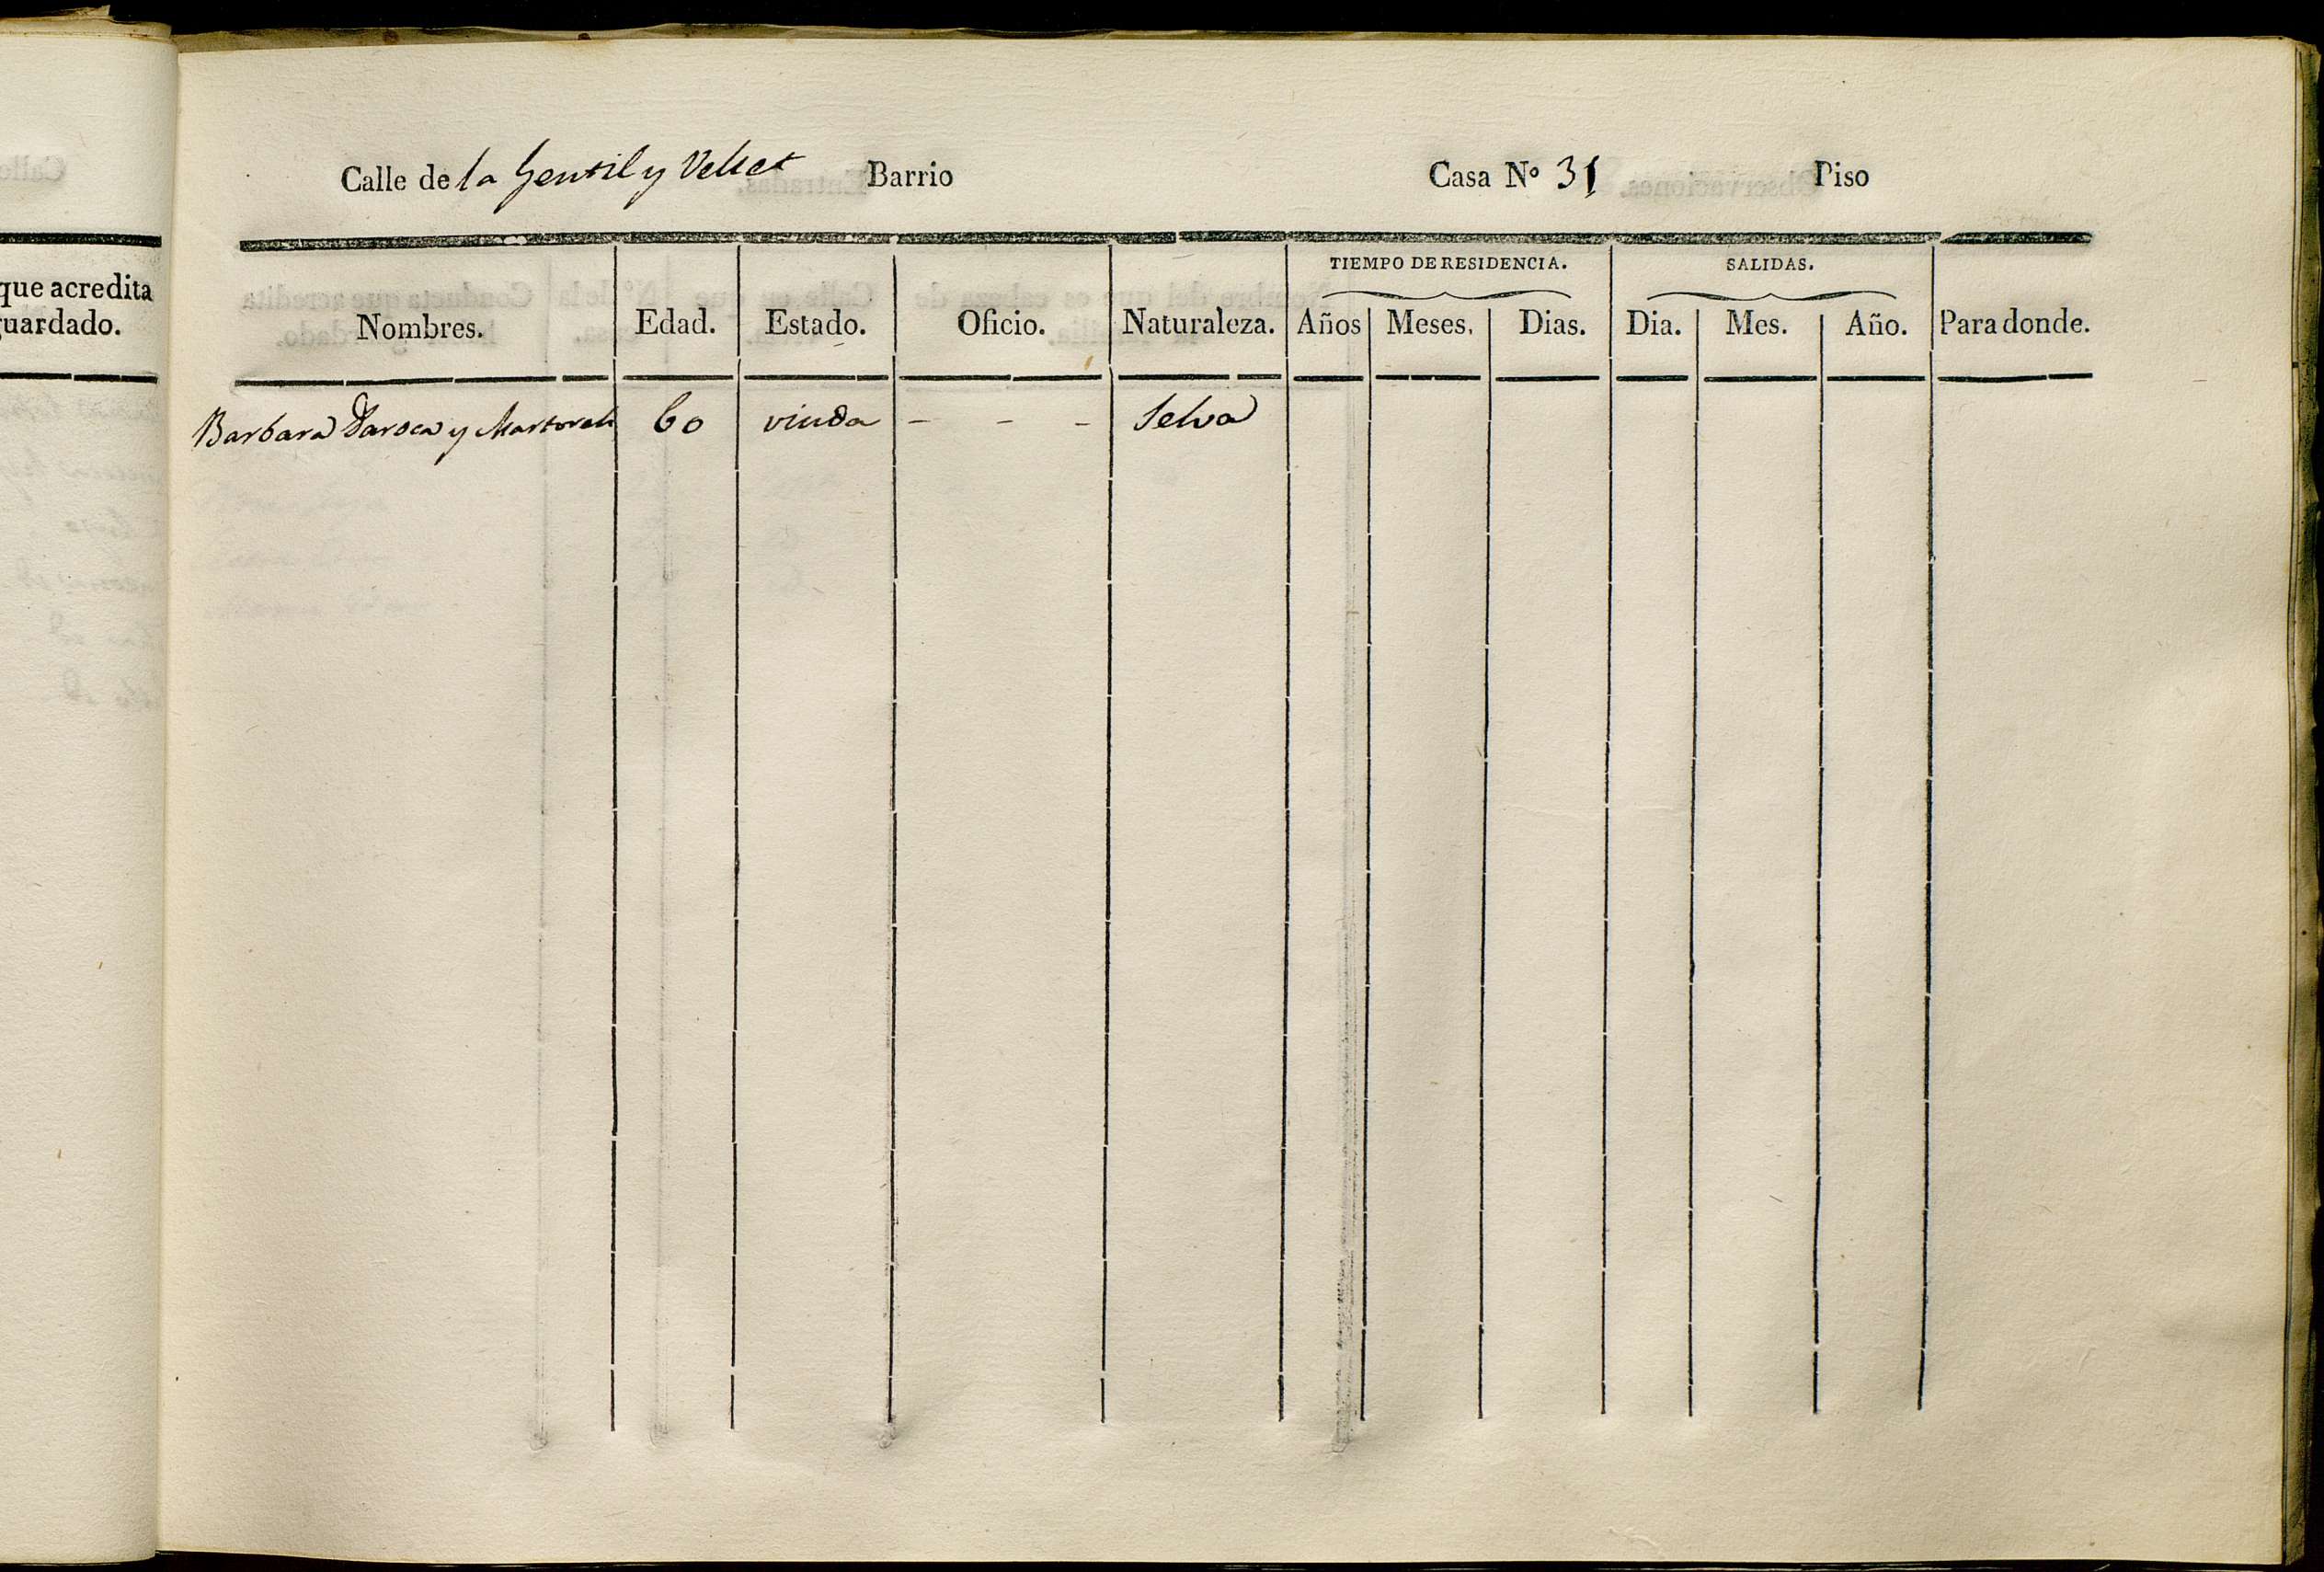 que acredita
guardado.
Calle de la Gentil y Vellet Barrio Casa Nº 31 Piso
TIEMPO DE RESIDENCIA. SALIDAS.
Nombres. Edad. Estado. Oficio. Naturaleza. Años Meses. Dias. Dia. Mes. Año. Para donde.
Barbara Daroca y Martorell 60 viuda - - - Selva